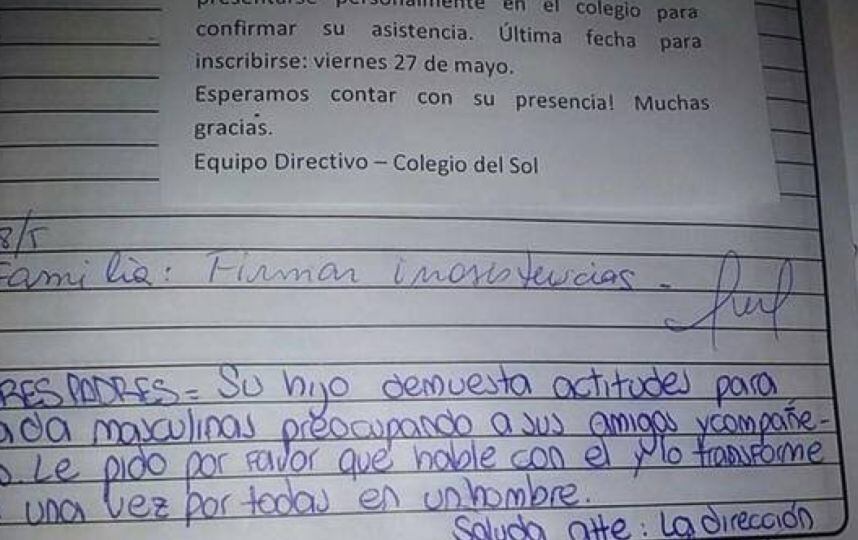 presentarse personalmente en el colegio para
confirmar su asistencia. Última fecha para
inscribirse: viernes 27 de mayo.
Esperamos contar con su presencia! Muchas
gracias.
Equipo Directivo – Colegio del Sol
8/5
Familia: Firmar inasistencias -
RES PADRES = Su hijo demuesta actitudes para
ada masculinas preocupando a sus amigos y compañe-
o. Le pido por favor que hable con el y lo transforme
una vez por todas en un hombre.
Saluda atte: La dirección